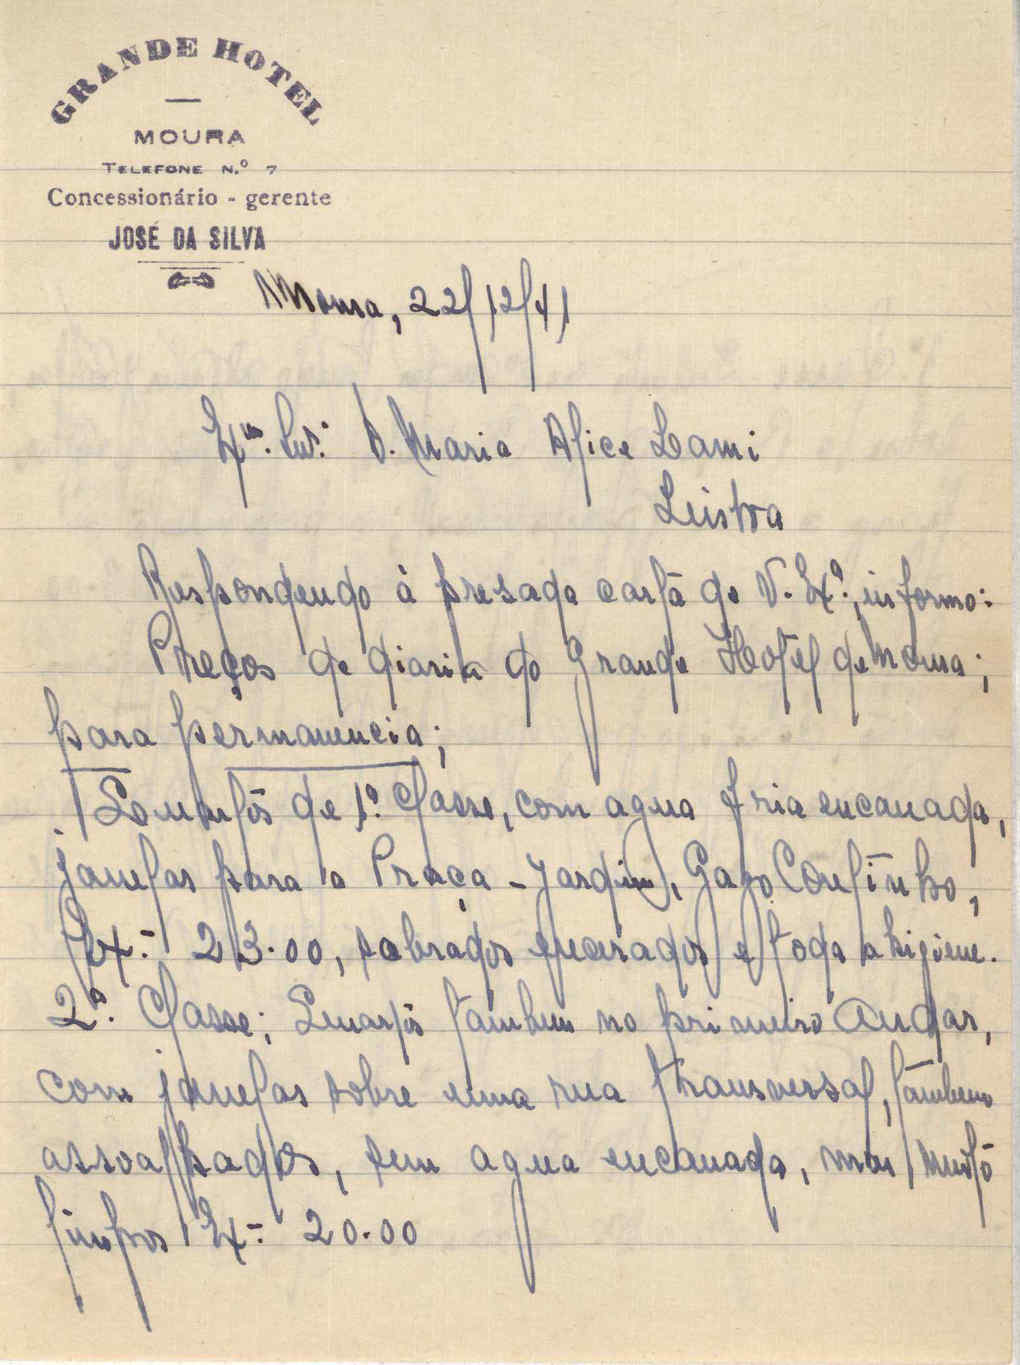 GRANDE HOTEL
MOURA
TELEFONE N.º 7
Concessionário - gerente
JOSÉ DA SILVA
Moura, 22/12/41
Exma. Snrª. D. Maria Alice Lami
Lisboa
Respondendo á presada carta de V. Exª., informo:
Preços de diaria do Grande Hotel de Moura;
para permanencia;
Quartos de 1ª. Classe, com agua fria encanada,
janelas para a Praça - Jardim, Gago Coutinho,
23.00, sobrados encerados e toda a higiene.
2ª. Classe; Quartos tambem no primeiro Andar,
com janelas sobre uma rua transversal, tambem
assoalhados, sem agua encanada, mas muito
limpos 20.00